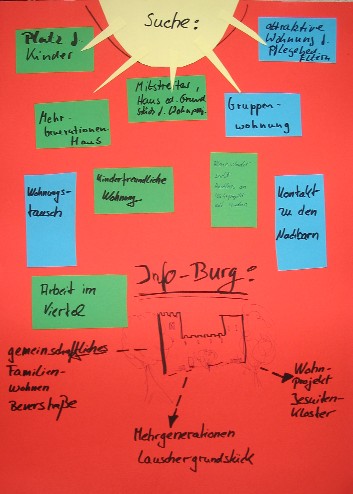 Suche:
Platz f.
Kinder
attraktive
Wohnung f.
Pflegebed.
Eltern
Mitstreiter,
Haus od. Grund
stück f. Wohnproj.
Mehr-
generationen-
Haus
Gruppen-
wohnung
Wohnungs-
tausch
Kinderfreundliche
Wohnung
Kontakt
zu den
Nachbarn
Arbeit im
Viertel
Info-Burg:
gemeinschaftliches
Familien-
wohnen
Wohn-
projekt
Jesuiten-
Kloster
Mehrgenerationen
Lauschergrundstück